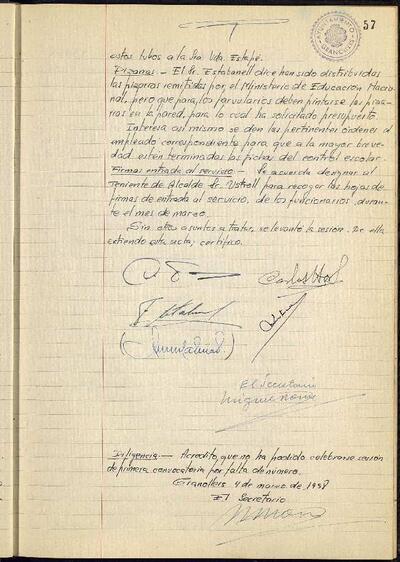 57
AYUNTAMIENTO
GRANOLLERS
estos tubos a la Sra Vda. Estapé.
Pizarras.- El Sr. Estabanell dice han sido distribuidas
las pizarras remitidas por el Ministerio de Educación Nacio-
nal, pero que para los parvularios deben pintarse las piza-
rras en la pared, para lo cual ha solicitado presupuesto.
Interesa asi mismo se den las pertinentes ordenes al
empleado correspondiente para que a la mayor breve-
dad estén terminadas las fichas del control escolar.
Firmas entrada al servicio.- Se acuerda designar al
Teniente de Alcalde Sr. Ustrell para recoger las hojas de
firmas de entrada al servicio, de los funcionarios, duran-
te el mes de marzo.
Sin otros asuntos a tratar, se levantó la sesión. De ella
extiendo esta acta; certifico.
El Secretario
Diligencia.- Acredito, que no ha podido celebrarse sesión
de primera convocatoria por falta de número.
Granollers 4 de marzo de 1958
El Secretario